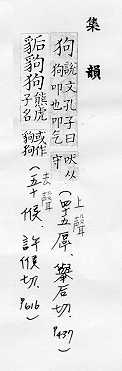 集韻
狗 說文孔子曰狗叩也叩气吠以守 (上聲 四十五厚, 舉后切. P437)
豿狗 熊虎子名或作豿狗 (去聲 五十候, 許候切. P616)